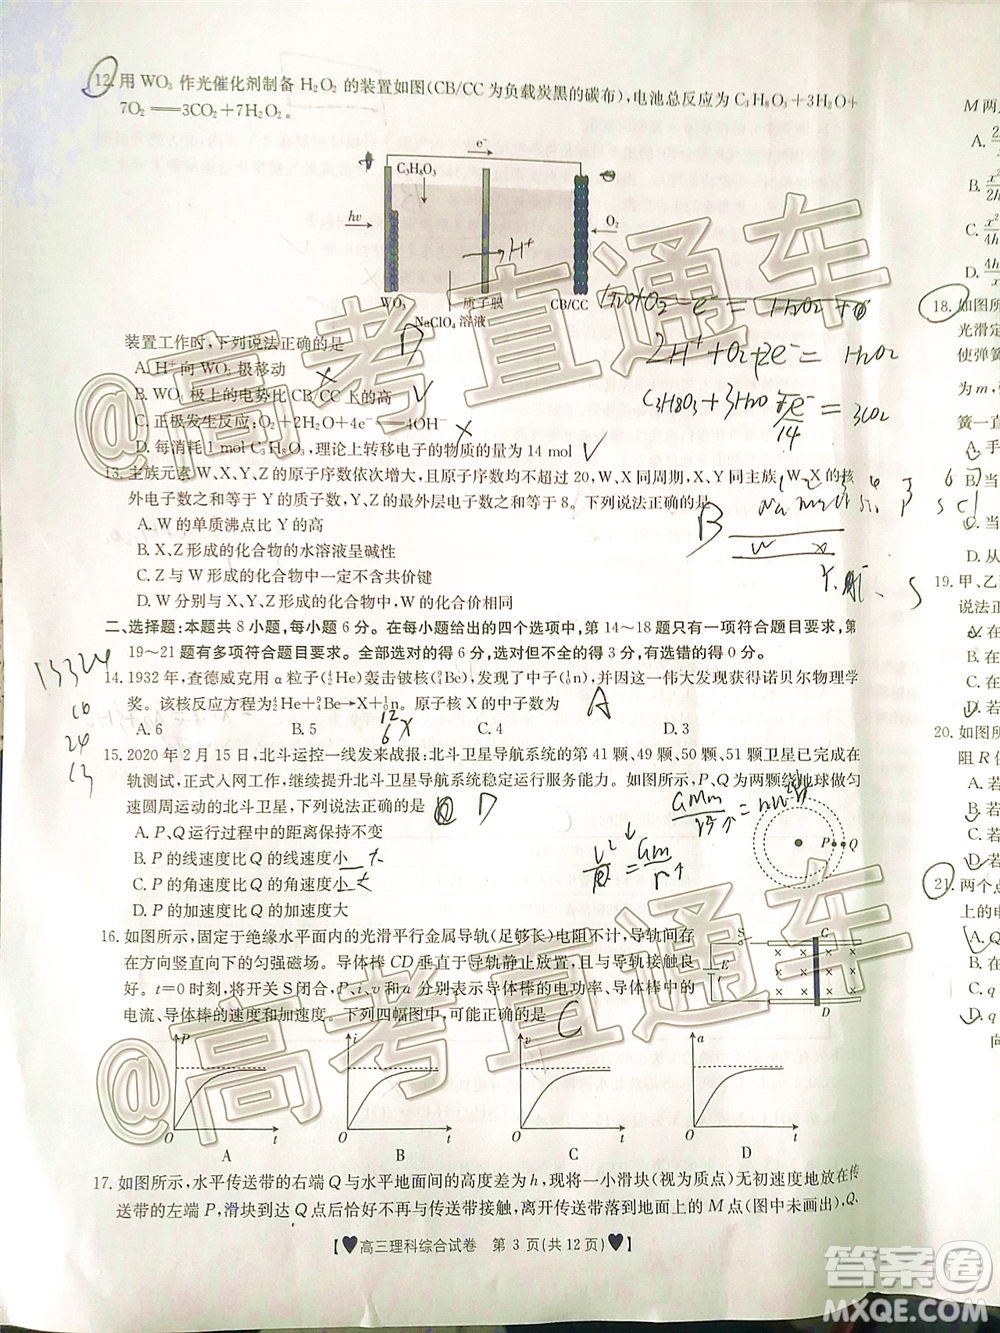 12. 用 WO₃ 作光催化剂制备 H₂O₂ 的装置如图(CB/CC 为负载炭黑的碳布),电池总反应为 C₃H₈O₃+3H₂O+
7O₂══3CO₂+7H₂O₂。
e⁻
C₃H₈O₃
hν
O₂
H⁺
WO₃
质子膜
CB/CC
NaClO₄ 溶液
2H⁺+O₂+2e⁻=H₂O₂
C₃H₈O₃+3H₂O
14
3CO₂
装置工作时,下列说法正确的是
D
A. H⁺向 WO₃ 极移动
B. WO₃ 极上的电势比 CB/CC 上的高
C. 正极发生反应:O₂+2H₂O+4e⁻══4OH⁻
D. 每消耗 1 mol C₃H₈O₃,理论上转移电子的物质的量为 14 mol
13. 主族元素 W、X、Y、Z 的原子序数依次增大,且原子序数均不超过 20,W、X 同周期,X、Z 同主族,W、X 的核
外电子数之和等于 Y 的质子数,W、Z 的最外层电子数之和等于 8。下列说法正确的是
B
A. W 的单质沸点比 Y 的高
B. X、Z 形成的化合物的水溶液呈碱性
C. Z 与 W 形成的化合物中一定不含共价键
D. W 分别与 X、Y、Z 形成的化合物中,W 的化合价相同
二、选择题:本题共 8 小题,每小题 6 分。在每小题给出的四个选项中,第 14~18 题只有一项符合题目要求,第
19~21 题有多项符合题目要求。全部选对的得 6 分,选对但不全的得 3 分,有选错的得 0 分。
14. 1932 年,查德威克用 α 粒子(⁴₂He)轰击铍核(⁹₄Be),发现了中子(¹₀n),他因这一伟大发现而获得诺贝尔物理学
奖。该核反应方程为⁴₂He+⁹₄Be→X+¹₀n。原子核 X 的中子数为
A
A. 6 B. 5 C. 4 D. 3
¹²₆X
15. 2020 年 2 月 15 日,北斗运控一线发来战报:北斗卫星导航系统的第 41 颗、49 颗、50 颗、51 颗卫星已完成在
轨测试,正式入网工作,继续提升北斗卫星导航系统稳定运行服务能力。如图所示,P、Q 为两颗绕地球做匀
速圆周运动的北斗卫星,下列说法正确的是
D
A. P、Q 运行过程中的距离保持不变
B. P 的线速度比 Q 的线速度小
C. P 的角速度比 Q 的角速度小
D. P 的加速度比 Q 的加速度大
P Q
16. 如图所示,固定于绝缘水平面内的光滑平行金属导轨(足够长)电阻不计,导轨间存
在方向竖直向下的匀强磁场。导体棒 CD 垂直于导轨静止放置,且与导轨接触良
好。t=0 时刻,将开关 S 闭合,若用 P、i、v 和 a 分别表示导体棒的电功率、
电流、导体棒的速度和加速度。下列四幅图中,可能正确的是
C
S C
E
D
P i v a
O t O t O t O t
A B C D
17. 如图所示,水平传送带的右端 Q 与水平地面间的高度差为 h,现将一小滑块(视为质点)无初速度地放在传
送带的左端 P,滑块到达 Q 点后恰好不再与传送带接触,并离开传送带落到地面上的 M 点(图中未画出),Q、
【♥高三理科综合试卷 第 3 页(共 12 页)♥】
M 两
A.
B.
C.
D.
18. 如图所
光滑定
使弹簧
为 m,
簧一直
A. 手
B. 当
C. 当
D. 从
19. 甲、乙
说法正
A. 在
B. 在
C. 若
D. 若
20. 如图所
阻 R
A. 若
B. 若
C. 若
D. 若
21. 两个点
上的电
A. Q
B. 在
C. q
D.
向
@高考直通车
@高考直通车
答案圈
MXQE.COM